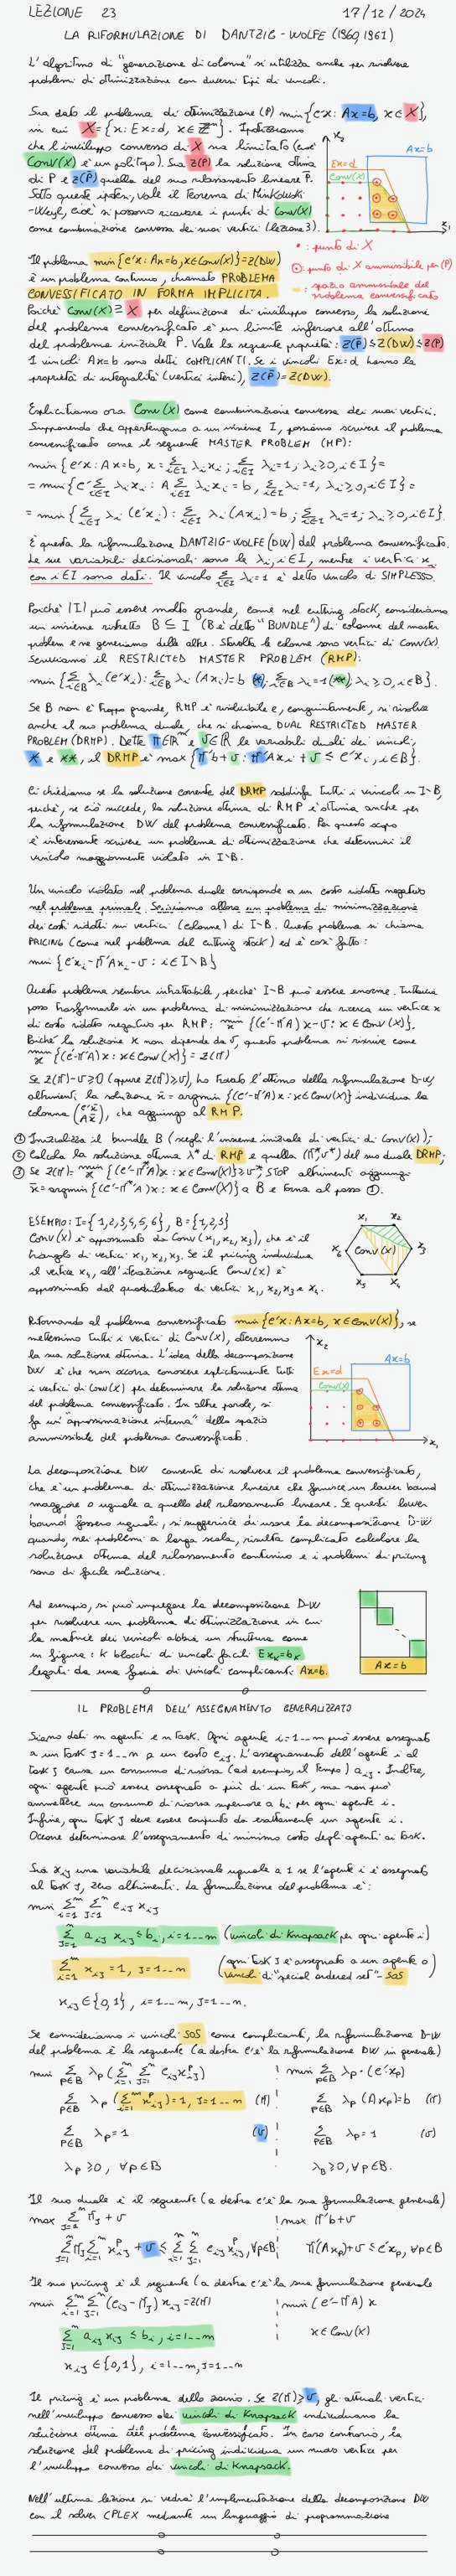 LEZIONE 23 17/12/2024
LA RIFORMULAZIONE DI DANTZIG-WOLFE (1960, 1961)
L'algoritmo di "generazione di colonne" si utilizza anche per risolvere
problemi di ottimizzazione con diversi tipi di vincoli.
Sia dato il problema di ottimizzazione (P) min{c'x: Ax=b, x∈X},
in cui X={x: Ex=d, x∈Zⁿ}. Ipotizziamo
che l'inviluppo convesso di X sia limitato (cioè
Conv(X) è un politopo). Sia Z(P) la soluzione ottima
di P e Z(P̄) quella del suo rilassamento lineare P̄.
Sotto queste ipotesi, vale il Teorema di Minkowski
-Weyl, cioè si possono ricavare i punti di Conv(X)
come combinazione convessa dei suoi vertici (lezione 3).
x₂
Ax=b
Ex=d
Conv(X)
x₁
• : punto di X
⊙: punto di X ammissibile per (P)
: spazio ammissibile del
problema convessificato
Il problema min{c'x: Ax=b, x∈Conv(X)}=Z(DW)
è un problema continuo, chiamato PROBLEMA
CONVESSIFICATO IN FORMA IMPLICITA.
Poiché Conv(X) ⊇ X per definizione di inviluppo convesso, la soluzione
del problema convessificato è un limite inferiore all'ottimo
del problema iniziale P. Vale la seguente proprietà: Z(P̄) ≤ Z(DW) ≤ Z(P)
I vincoli Ax=b sono detti COMPLICANTI. Se i vincoli Ex=d hanno la
proprietà di integralità (vertici interi), Z(P̄)=Z(DW).
Esplicitiamo ora Conv(X) come combinazione convessa dei suoi vertici.
Supponendo che appartengano a un insieme I, possiamo scrivere il problema
convessificato come il seguente MASTER PROBLEM (MP):
min{c'x: Ax=b, x=Σ_{i∈I} λᵢxᵢ; Σ_{i∈I} λᵢ=1, λᵢ≥0, i∈I}=
= min{c'Σ_{i∈I} λᵢxᵢ: AΣ_{i∈I} λᵢxᵢ=b, Σ_{i∈I} λᵢ=1, λᵢ≥0, i∈I}=
= min{Σ_{i∈I} λᵢ(c'xᵢ): Σ_{i∈I} λᵢ(Axᵢ)=b; Σ_{i∈I} λᵢ=1; λᵢ≥0, i∈I}.
È questa la riformulazione DANTZIG-WOLFE (DW) del problema convessificato.
Le sue variabili decisionali sono le λᵢ, i∈I, mentre i vertici xᵢ
con i∈I sono dati. Il vincolo Σ_{i∈I} λᵢ=1 è detto vincolo di SIMPLESSO.
Poiché |I| può essere molto grande, come nel cutting stock, consideriamo
un insieme ristretto B⊆I (B è detto "BUNDLE") di colonne del master
problem e ne generiamo delle altre. Stavolta le colonne sono vertici di Conv(X).
Scriviamo il RESTRICTED MASTER PROBLEM (RMP):
min{Σ_{i∈B} λᵢ(c'xᵢ): Σ_{i∈B} λᵢ(Axᵢ)=b (*); Σ_{i∈B} λᵢ=1 (**); λᵢ≥0, i∈B}.
Se B non è troppo grande, RMP è risolubile e, congiuntamente, si risolve
anche il suo problema duale, che si chiama DUAL RESTRICTED MASTER
PROBLEM (DRMP). Dette π∈Rᵐ e v∈R le variabili duali dei vincoli
* e **, il DRMP è max{π'b+v: π'Axᵢ+v ≤ c'xᵢ, i∈B}.
Ci chiediamo se la soluzione corrente del DRMP soddisfa tutti i vincoli in I-B,
perché, se ciò succede, la soluzione ottima di RMP è ottima anche per
la riformulazione DW del problema convessificato. Per questo scopo
è interessante scrivere un problema di ottimizzazione che determini il
vincolo maggiormente violato in I-B.
Un vincolo violato nel problema duale corrisponde a un costo ridotto negativo
nel problema primale. Scriviamo allora un problema di minimizzazione
dei costi ridotti sui vertici (colonne) di I-B. Questo problema si chiama
PRICING (come nel problema del cutting stock) ed è così fatto:
min{c'xᵢ-π'Axᵢ-v: i∈I\B}
Questo problema sembra intrattabile, perché I-B può essere enorme. Tuttavia
posso trasformarlo in un problema di minimizzazione che ricerca un vertice x
di costo ridotto negativo per RMP: min_x {(c'-π'A)x-v: x∈Conv(X)}.
Poiché la soluzione x non dipende da v, questo problema si riscrive come
min_x {(c'-π'A)x: x∈Conv(X)}=Z(π)
Se Z(π)-v≥0 (oppure Z(π)≥v), ho trovato l'ottimo della riformulazione D-W,
altrimenti la soluzione x̄=argmin{(c'-π'A)x: x∈Conv(X)} individua la
colonna (c'x̄ Ax̄), che aggiungo al RMP.
① Inizializza il bundle B (scegli l'insieme iniziale di vertici di Conv(X));
② Calcola la soluzione ottima λ* di RMP e quella (π*,v*) del suo duale DRMP;
③ Se Z(π)=min_x {(c'-π*'A)x: x∈Conv(X)}≥v*, STOP altrimenti aggiungi
x̄=argmin{(c'-π*'A)x: x∈Conv(X)} a B e torna al passo ①.
ESEMPIO: I={1,2,3,4,5,6}, B={1,2,3}
Conv(X) è approssimato da Conv(x₁,x₂,x₃), che è il
triangolo di vertici x₁,x₂,x₃. Se il pricing individua
il vertice x₄, all'iterazione seguente Conv(X) è
approssimato dal quadrilatero di vertici x₁,x₂,x₃ e x₄.
x₁ x₂
x₆ Conv(X) x₃
x₅ x₄
Ritornando al problema convessificato min{c'x: Ax=b, x∈Conv(X)}, se
mettessimo tutti i vertici di Conv(X), otterremmo
la sua soluzione ottima. L'idea della decomposizione
DW è che non occorra conoscere esplicitamente tutti
i vertici di Conv(X) per determinare la soluzione ottima
del problema convessificato. In altre parole, si
fa un'"approssimazione interna" dello spazio
ammissibile del problema convessificato.
x₂
Ax=b
Ex=d
Conv(X)
x₁
La decomposizione DW consente di risolvere il problema convessificato,
che è un problema di ottimizzazione lineare che fornisce un lower bound
maggiore o uguale a quello del rilassamento lineare. Se questi lower
bound fossero uguali, si suggerisce di usare la decomposizione D-W
quando, nei problemi a larga scala, risulta complicato calcolare la
soluzione ottima del rilassamento continuo e i problemi di pricing
sono di facile soluzione.
Ad esempio, si può impiegare la decomposizione D-W
per risolvere un problema di ottimizzazione in cui
la matrice dei vincoli abbia una struttura come
in figura: K blocchi di vincoli facili Exₖ=bₖ
legati da una fascia di vincoli complicanti Ax=b.
Ax=b
IL PROBLEMA DELL'ASSEGNAMENTO GENERALIZZATO
Siano dati m agenti e n task. Ogni agente i=1--m può essere assegnato
a un task j=1--n a un costo cᵢⱼ. L'assegnamento dell'agente i al
task j causa un consumo di risorsa (ad esempio, il tempo) aᵢⱼ. Inoltre,
ogni agente può essere assegnato a più di un task, ma non può
ammettere un consumo di risorsa superiore a bᵢ per ogni agente i.
Infine, ogni task j deve essere compiuto da esattamente un agente i.
Occorre determinare l'assegnamento di minimo costo degli agenti ai task.
Sia xᵢⱼ una variabile decisionale uguale a 1 se l'agente i è assegnato
al task j, zero altrimenti. La formulazione del problema è:
min Σ_{i=1}^m Σ_{j=1}^n cᵢⱼ xᵢⱼ
Σ_{j=1}^n aᵢⱼ xᵢⱼ ≤ bᵢ, i=1--m (vincoli di Knapsack per ogni agente i)
Σ_{i=1}^m xᵢⱼ = 1, j=1--n (ogni task j è assegnato a un agente o
vincoli di "special ordered set" - SOS)
xᵢⱼ∈{0,1}, i=1--m, j=1--n.
Se consideriamo i vincoli SOS come complicanti, la riformulazione D-W
del problema è la seguente (a destra c'è la riformulazione DW in generale)
min Σ_{p∈B} λₚ(Σ_{i=1}^m Σ_{j=1}^n cᵢⱼxᵢⱼᵖ) min Σ_{p∈B} λₚ·(c'xₚ)
Σ_{p∈B} λₚ(Σ_{i=1}^m xᵢⱼᵖ)=1, j=1--n (π) Σ_{p∈B} λₚ(Axₚ)=b (π)
Σ_{p∈B} λₚ=1 (v) Σ_{p∈B} λₚ=1 (v)
λₚ≥0, ∀p∈B λₚ≥0, ∀p∈B.
Il suo duale è il seguente (a destra c'è la sua formulazione generale)
max Σ_{j=1}^n πⱼ+v max π'b+v
Σ_{j=1}^n πⱼ Σ_{i=1}^m xᵢⱼᵖ+v ≤ Σ_{i=1}^m Σ_{j=1}^n cᵢⱼxᵢⱼᵖ, ∀p∈B π'(Axₚ)+v ≤ c'xₚ, ∀p∈B
Il suo pricing è il seguente (a destra c'è la sua formulazione generale
min Σ_{i=1}^m Σ_{j=1}^n (cᵢⱼ-πⱼ)xᵢⱼ=Z(π) min (c'-π'A)x
Σ_{j=1}^n aᵢⱼ xᵢⱼ ≤ bᵢ, i=1--m x∈Conv(X)
xᵢⱼ∈{0,1}, i=1--m, j=1--n
Il pricing è un problema dello zaino. Se Z(π)≥v, gli attuali vertici
nell'inviluppo convesso dei vincoli di Knapsack individuano la
soluzione ottima del problema convessificato. In caso contrario, la
soluzione del problema di pricing individua un nuovo vertice per
l'inviluppo convesso dei vincoli di Knapsack.
Nell'ultima lezione si vedrà l'implementazione della decomposizione DW
con il solver CPLEX mediante un linguaggio di programmazione